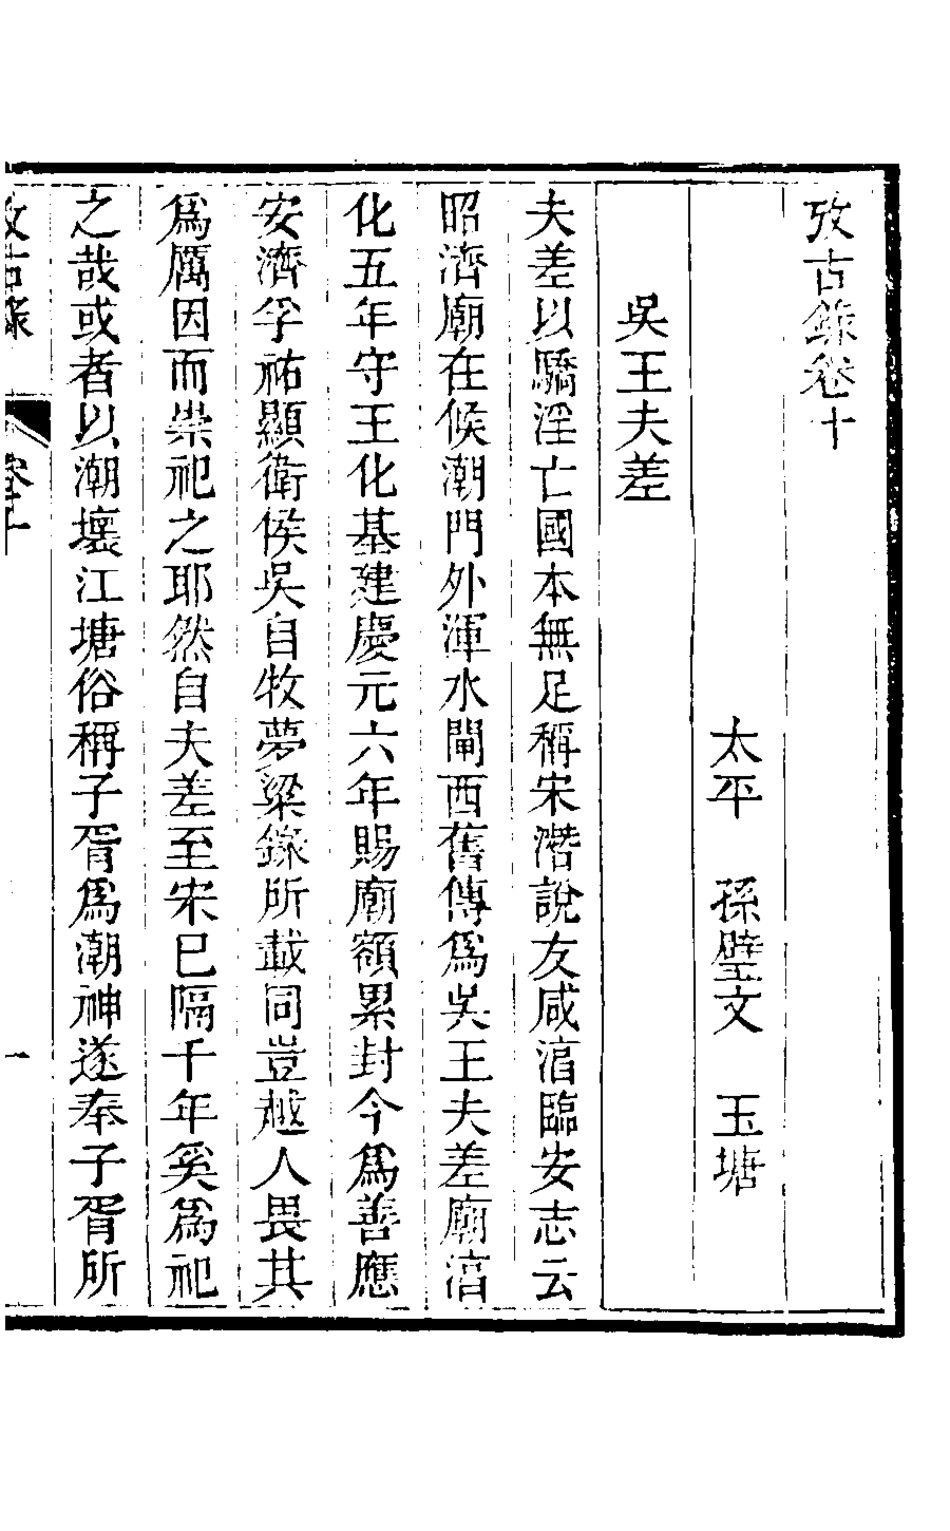 攷古錄卷十
太平　孫璧文　玉塘
吳王夫差
夫差以驕淫亡國本無足稱宋潛說友咸淳臨安志云
昭濟廟在候潮門外渾水閘西舊傳爲吳王夫差廟淳
化五年守王化基建慶元六年賜廟額累封今爲善應
安濟孚祐顯衛侯吳自牧夢粱錄所載同豈越人畏其
爲厲因而崇祀之耶然自夫差至宋已隔千年奚爲祀
之哉或者以潮壞江塘俗稱子胥爲潮神遂奉子胥所
攷古錄　卷十　一